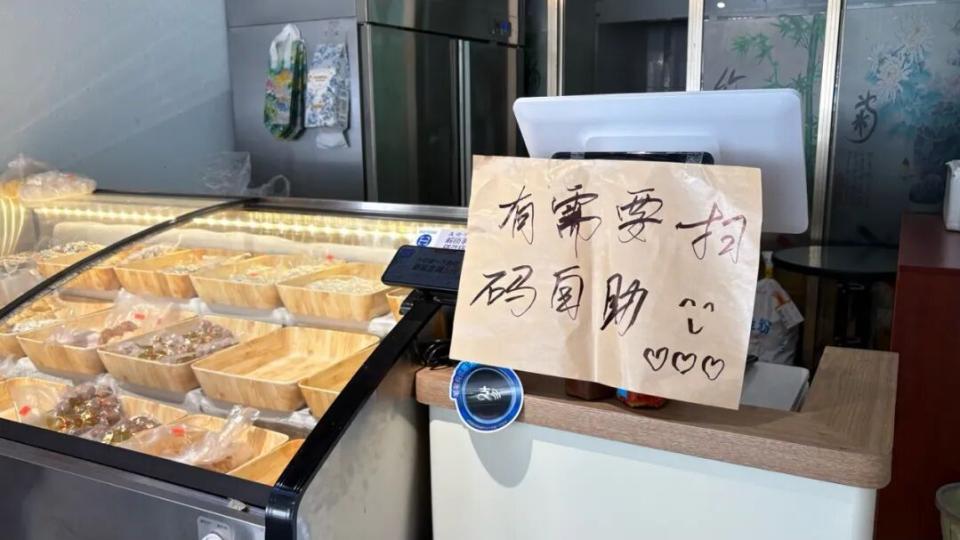 有需要扫
码自助
菊